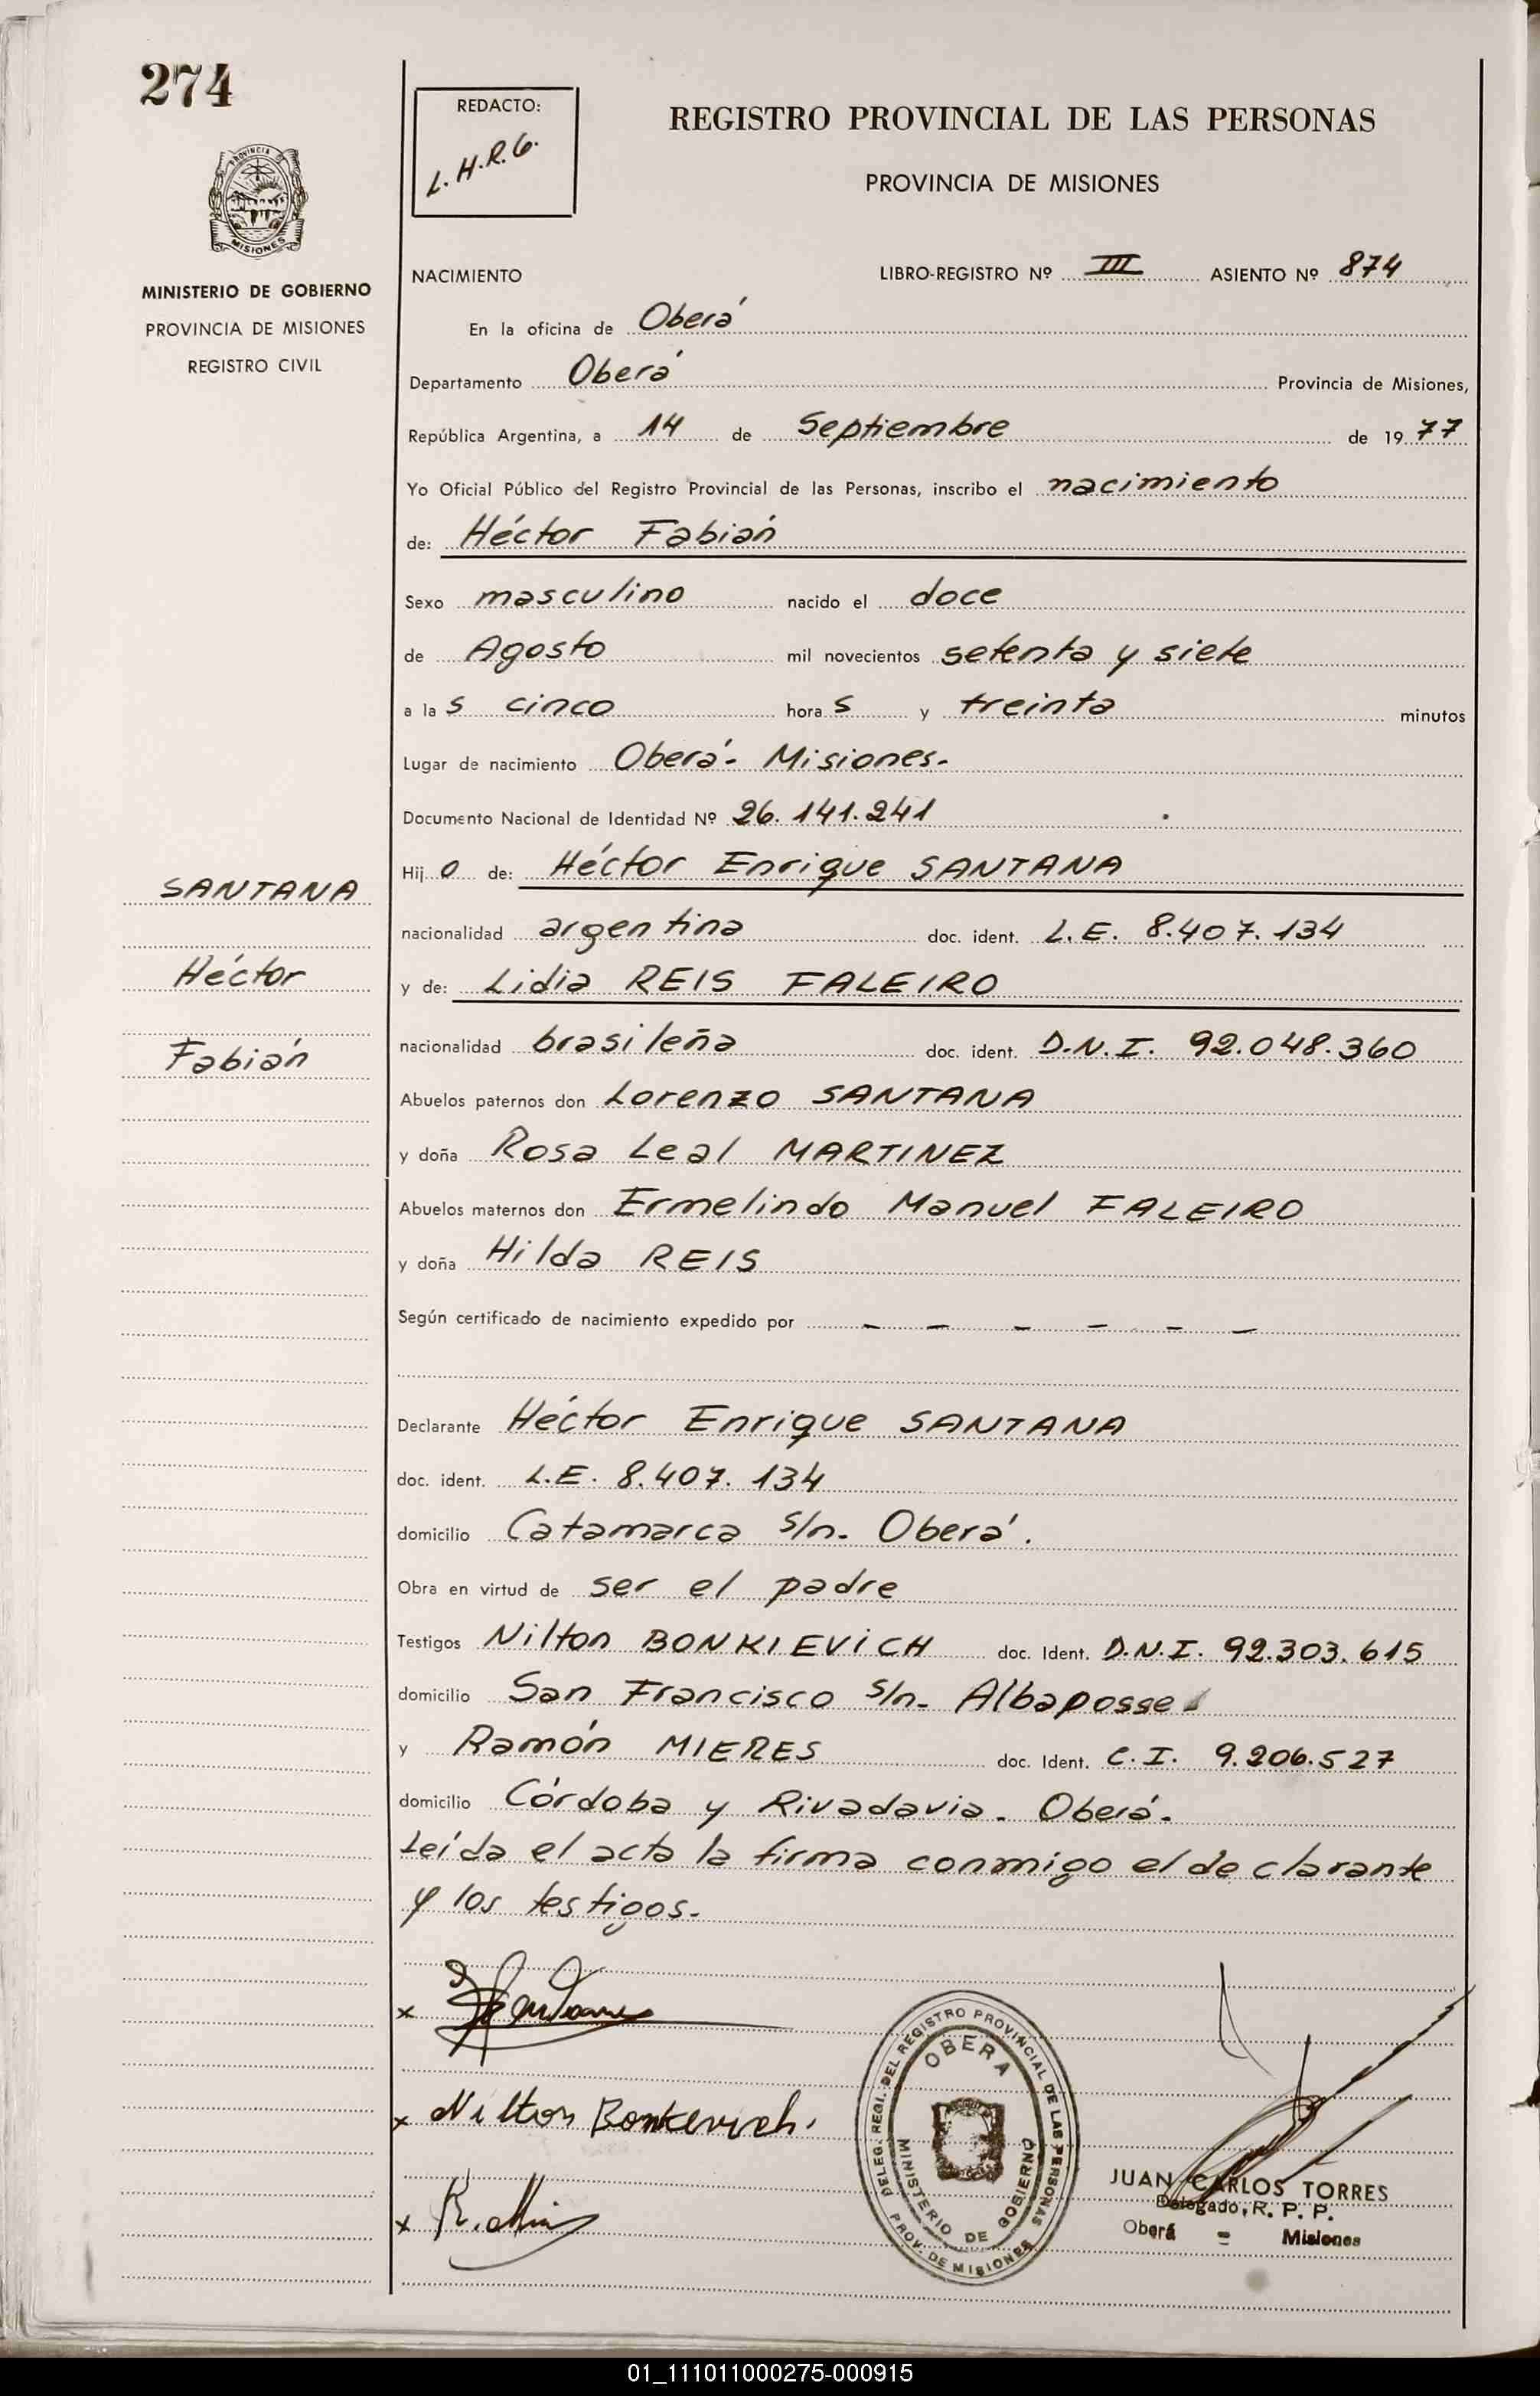 274
REDACTO:
L. H. R. G.
REGISTRO PROVINCIAL DE LAS PERSONAS
PROVINCIA DE MISIONES
PROVINCIA DE
MISIONES
MINISTERIO DE GOBIERNO
PROVINCIA DE MISIONES
REGISTRO CIVIL
NACIMIENTO LIBRO-REGISTRO Nº III ASIENTO Nº 874
En la oficina de Oberá
Departamento Oberá Provincia de Misiones,
República Argentina, a 14 de Septiembre de 1977
Yo Oficial Público del Registro Provincial de las Personas, inscribo el nacimiento
de: Héctor Fabián
Sexo masculino nacido el doce
de Agosto mil novecientos setenta y siete
a las cinco horas y treinta minutos
Lugar de nacimiento Oberá- Misiones-
Documento Nacional de Identidad Nº 26.141.241
Hijo de: Héctor Enrique SANTANA
SANTANA
nacionalidad argentina doc. ident. L.E. 8.407.134
Héctor
y de: Lidia REIS FALEIRO
Fabián
nacionalidad brasileña doc. ident. D.N.I. 92.048.360
Abuelos paternos don Lorenzo SANTANA
y doña Rosa Leal MARTINEZ
Abuelos maternos don Ermelindo Manuel FALEIRO
y doña Hilda REIS
Según certificado de nacimiento expedido por - - - - - -
Declarante Héctor Enrique SANTANA
doc. ident. L.E. 8.407.134
domicilio Catamarca s/n- Oberá.
Obra en virtud de ser el padre
Testigos Nilton BONKIEVICH doc. Ident. D.N.I. 92.303.615
domicilio San Francisco s/n- Albaposse
y Ramón MIERES doc. Ident. C.I. 9.206.527
domicilio Córdoba y Rivadavia- Oberá-
Leída el acta la firma conmigo el declarante
y los testigos-
x
x Nilton Bonkevich.
x
DELEG. REGI. DEL REGISTRO PROVINCIAL DE LAS PERSONAS
OBERA
MINISTERIO DE GOBIERNO
PROV. DE MISIONES
JUAN CARLOS TORRES
Delegado, R. P. P.
Oberá = Misiones
01_111011000275-000915